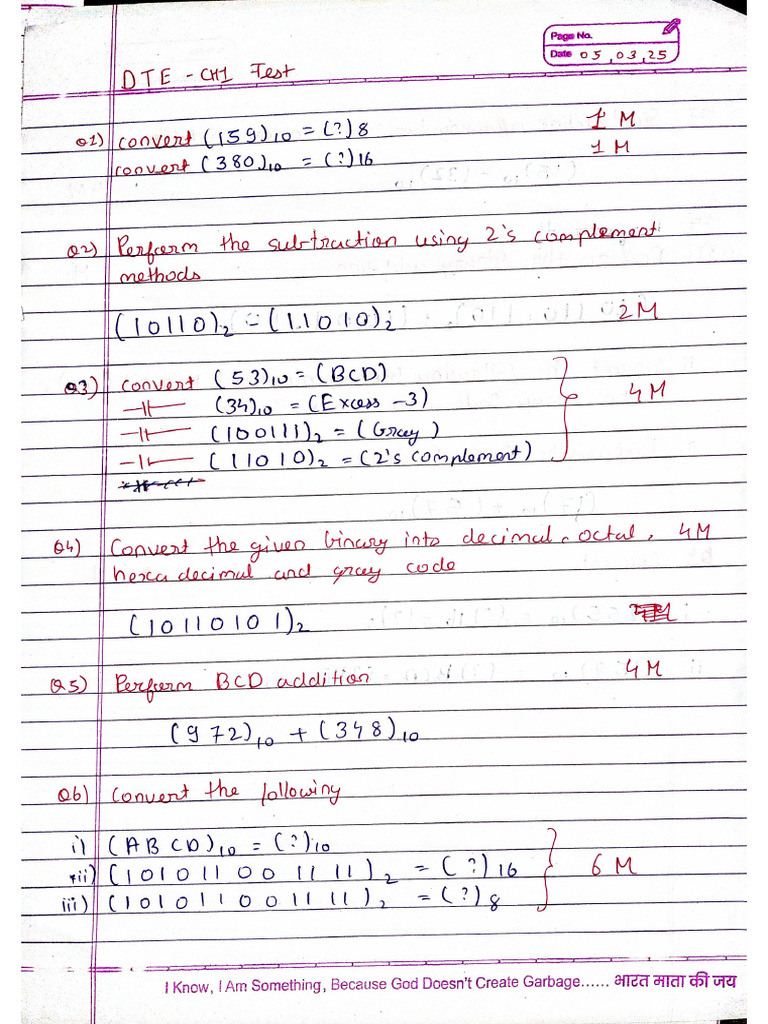 Page No.
Date 05,03,25
DTE - CH1 Test
Q1) convert (159)10 = (?)8 1 M
convert (380)10 = (?)16 1 M
Q2) Perform the subtraction using 2's complement
methods
(10110)2 - (11010)2 2M
Q3) convert (53)10 = (BCD)
-11- (34)10 = (Excess -3) 4M
-11- (100111)2 = (Gray)
-11- (11010)2 = (2's complement)
Q4) Convert the given binary into decimal, octal, 4M
hexadecimal and gray code
(10110101)2
Q5) Perform BCD addition 4M
(972)10 + (348)10
Q6) Convert the following
i) (ABCD)10 = (?)10
ii) (1010110011111)2 = (?)16 6M
iii) (1010110011111)2 = (?)8
I Know, I Am Something, Because God Doesn't Create Garbage...... भारत माता की जय